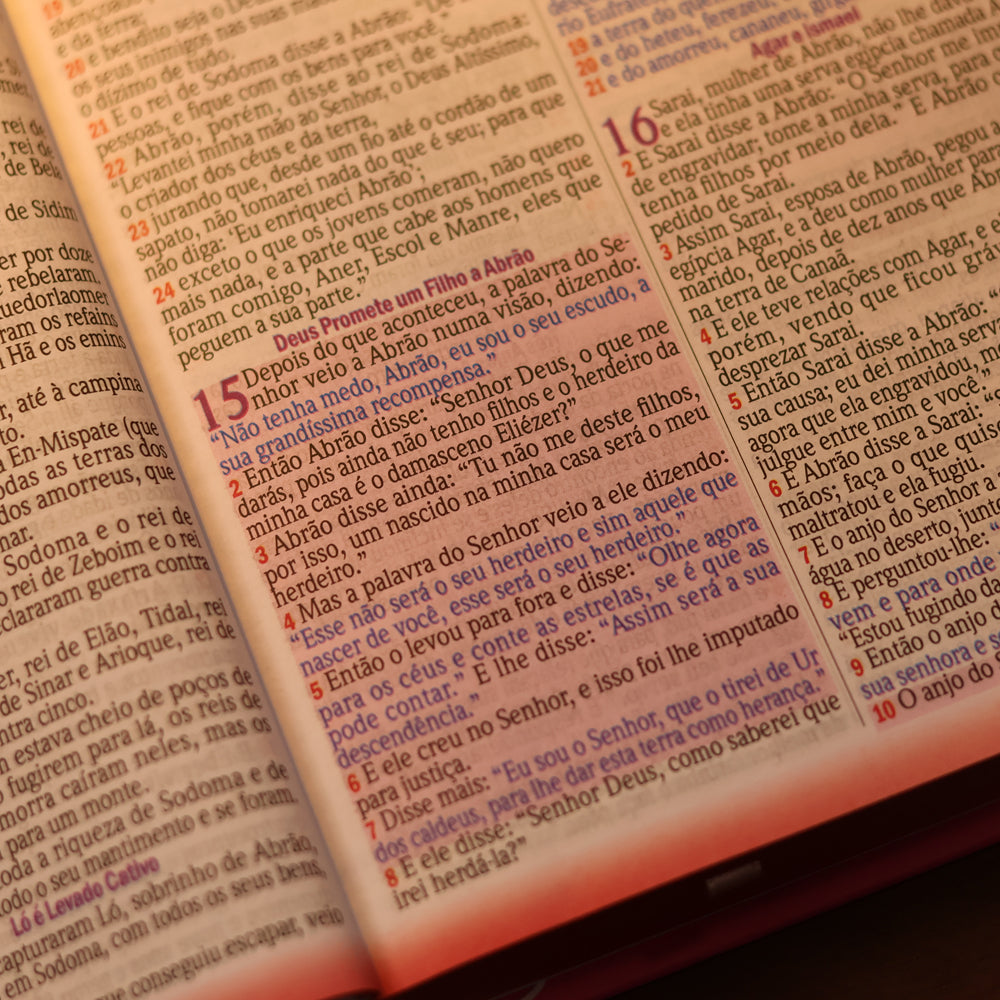 rei de
, rei de
de Bela
de Sidim
er por doze
e rebelaram.
uedorlaomer
ram os refains
Hã e os emins
r, até à campina
to.
a En-Mispate (que
odas as terras dos
dos amorreus, que
mar.
Sodoma e o rei de
o rei de Zeboim e o rei
eclararam guerra contra
er, rei de Elão, Tidal, rei
de Sinar e Arioque, rei de
ntra cinco.
m estava cheio de poços de
o fugirem para lá, os reis de
morra caíram neles, mas os
para um monte.
oda a riqueza de Sodoma e de
todo o seu mantimento e se foram.
Ló é Levado Cativo
capturaram Ló, sobrinho de Abrão,
em Sodoma, com todos os seus bens,
que conseguiu escapar, veio
19
e da terra;
20 e bendito seja o De
os seus inimigos nas suas
o dízimo de tudo.
21 E o rei de Sodoma disse a Abrão: "De
pessoas, e fique com os bens para você."
22 Abrão, porém, disse ao rei de Sodoma:
"Levantei minha mão ao Senhor, o Deus Altíssimo,
o criador dos céus e da terra,
23 jurando que, desde um fio até o cordão de um
sapato, não tomarei nada do que é seu; para que
não diga: 'Eu enriqueci Abrão';
24 exceto o que os jovens comeram, não quero
mais nada, e a parte que cabe aos homens que
foram comigo, Aner, Escol e Manre, eles que
peguem a sua parte."
Deus Promete um Filho a Abrão
15 Depois do que aconteceu, a palavra do Se-
nhor veio a Abrão numa visão, dizendo:
"Não tenha medo, Abrão, eu sou o seu escudo, a
sua grandíssima recompensa."
2 Então Abrão disse: "Senhor Deus, o que me
darás, pois ainda não tenho filhos e o herdeiro da
minha casa é o damasceno Eliézer?"
3 Abrão disse ainda: "Tu não me deste filhos,
por isso, um nascido na minha casa será o meu
herdeiro."
4 Mas a palavra do Senhor veio a ele dizendo:
"Esse não será o seu herdeiro e sim aquele que
nascer de você, esse será o seu herdeiro."
5 Então o levou para fora e disse: "Olhe agora
para os céus e conte as estrelas, se é que as
pode contar." E lhe disse: "Assim será a sua
descendência."
6 E ele creu no Senhor, e isso foi lhe imputado
para justiça.
7 Disse mais: "Eu sou o Senhor, que o tirei de Ur
dos caldeus, para lhe dar esta terra como herança."
8 E ele disse: "Senhor Deus, como saberei que
irei herdá-la?"
rio Eufrates
19 a terra do que
20 e do heteu, ferezeu,
21 e do amorreu, cananeu, girg
Agar e Ismael
16 Sarai, mulher de Abrão, não lhe dav
e ela tinha uma serva egípcia chamada
2 E Sarai disse a Abrão: "O Senhor me im
de engravidar; tome a minha serva, para
tenha filhos por meio dela." E Abrão
pedido de Sarai.
3 Assim Sarai, esposa de Abrão, pegou a
egípcia Agar, e a deu como mulher par
marido, depois de dez anos que Abr
na terra de Canaã.
4 E ele teve relações com Agar, e e
porém, vendo que ficou gráv
desprezar Sarai.
5 Então Sarai disse a Abrão: "
sua causa; eu dei minha serv
agora que ela engravidou, me
julgue entre mim e você."
6 E Abrão disse a Sarai: "S
mãos; faça o que quise
maltratou e ela fugiu.
7 E o anjo do Senhor a
água no deserto, junto
8 E perguntou-lhe: "
vem e para onde
"Estou fugindo da
9 Então o anjo d
sua senhora e s
10 O anjo do